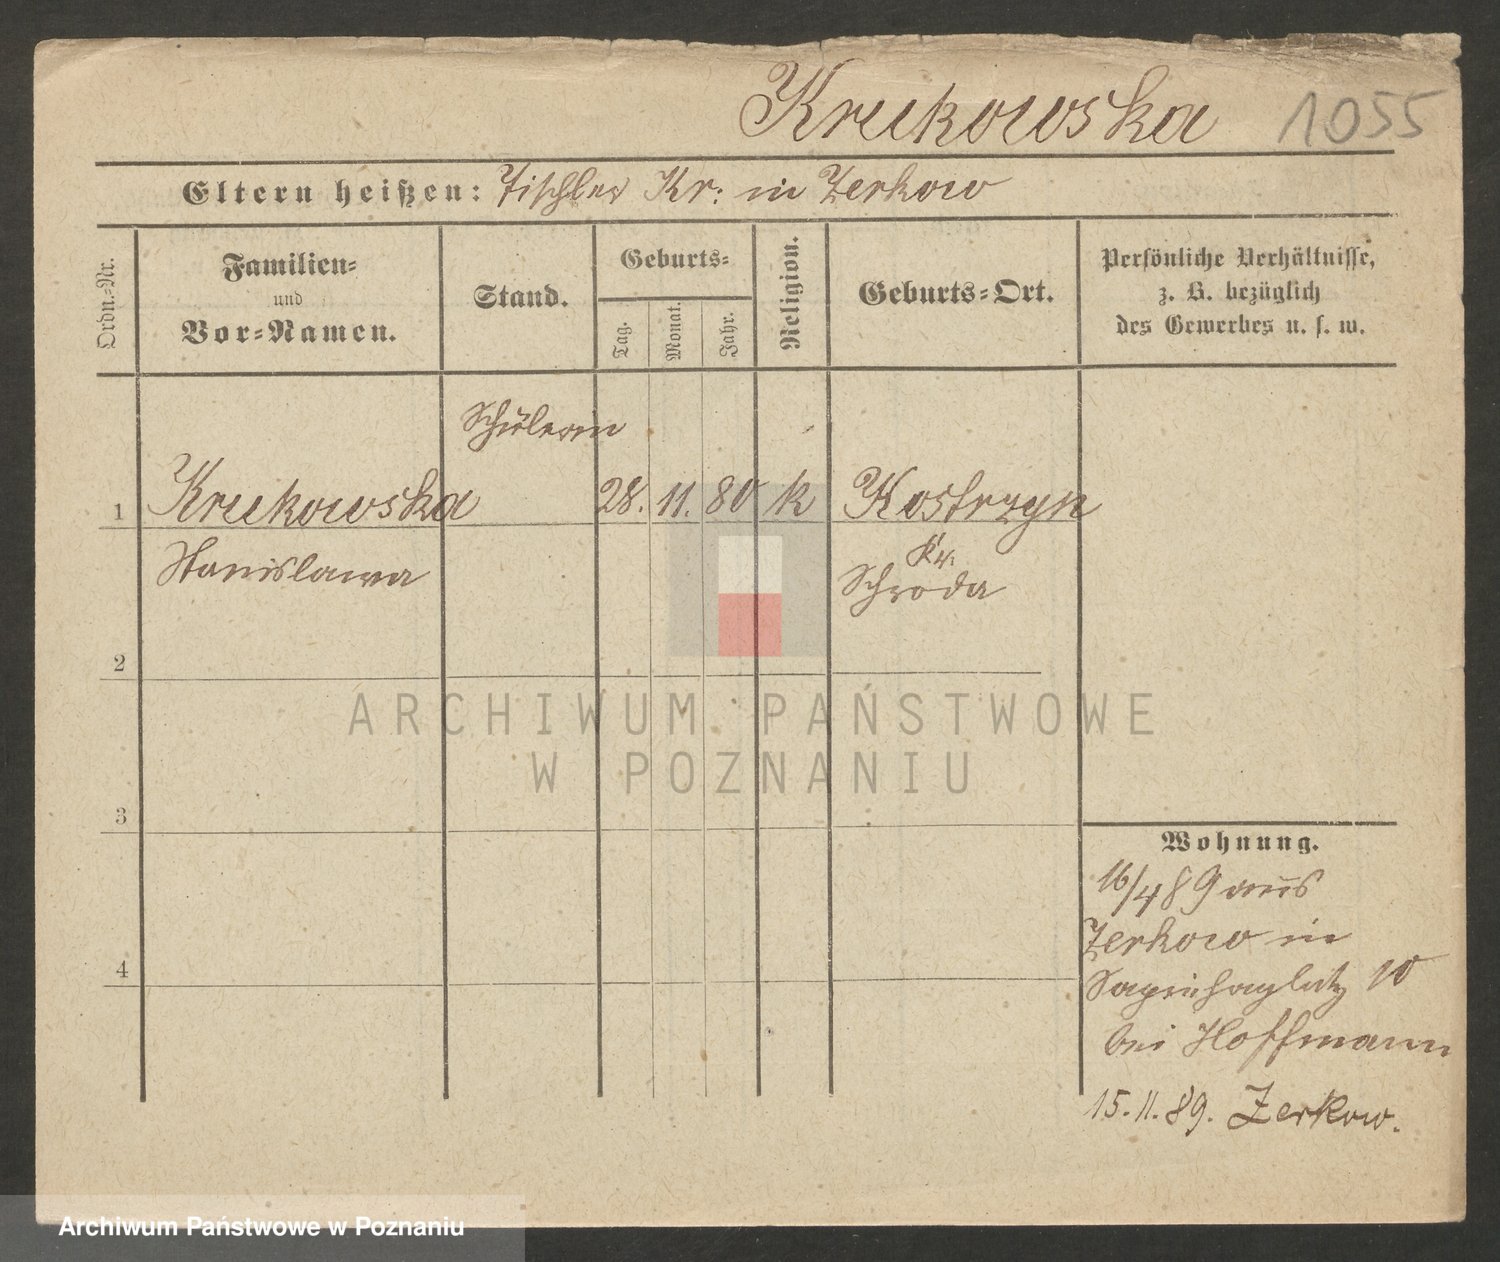 Krukowska 1055
Eltern heißen: Tischler Kr: in Zerkow
Ordn.-Nr.
Familien-
und
Vor-Namen.
Stand.
Geburts-
Tag.
Monat.
Jahr.
Religion.
Geburts-Ort.
Persönliche Verhältnisse,
z. B. bezüglich
des Gewerbes u. s. w.
Schülerin
1 Krukowska 28. 11. 80 k Kostrzyn
Stanislawa
Kr.
Schroda
2
ARCHIWUM PAŃSTWOWE
W POZNANIU
3
4
Wohnung.
16/4 89 aus
Zerkow in
Sapiehaplatz 10
bei Hoffmann
15.11.89. Zerkow.
Archiwum Państwowe w Poznaniu